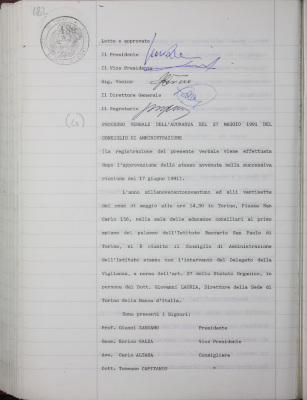 182
Letto e approvato
Il Presidente
Il Vice Presidente
Sig. Vesino
Il Direttore Generale
Il Segretario
PROCESSO VERBALE DELL'ADUNANZA DEL 27 MAGGIO 1991 DEL
CONSIGLIO DI AMMINISTRAZIONE
(la registrazione del presente verbale viene effettuata
dopo l'approvazione dello stesso avvenuta nella successiva
riunione del 17 giugno 1991).
L'anno millenovecentonovantuno ed alli ventisette
del mese di maggio alle ore 14,30 in Torino, Piazza San
Carlo 156, nella sala delle adunanze consiliari al primo
piano del palazzo dell'Istituto Bancario San Paolo di
Torino, si è riunito il Consiglio di Amministrazione
dell'Istituto stesso con l'intervento del Delegato della
Vigilanza, a norma dell'art. 27 dello Statuto Organico, in
persona del Dott. Giovanni LAURIA, Direttore della Sede di
Torino della Banca d'Italia.
Sono presenti i Signori:
Prof. Gianni ZANDANO Presidente
Geom. Enrico SALZA Vice Presidente
Avv. Carlo ALTARA Consigliere
Dott. Tommaso CAPITANIO "